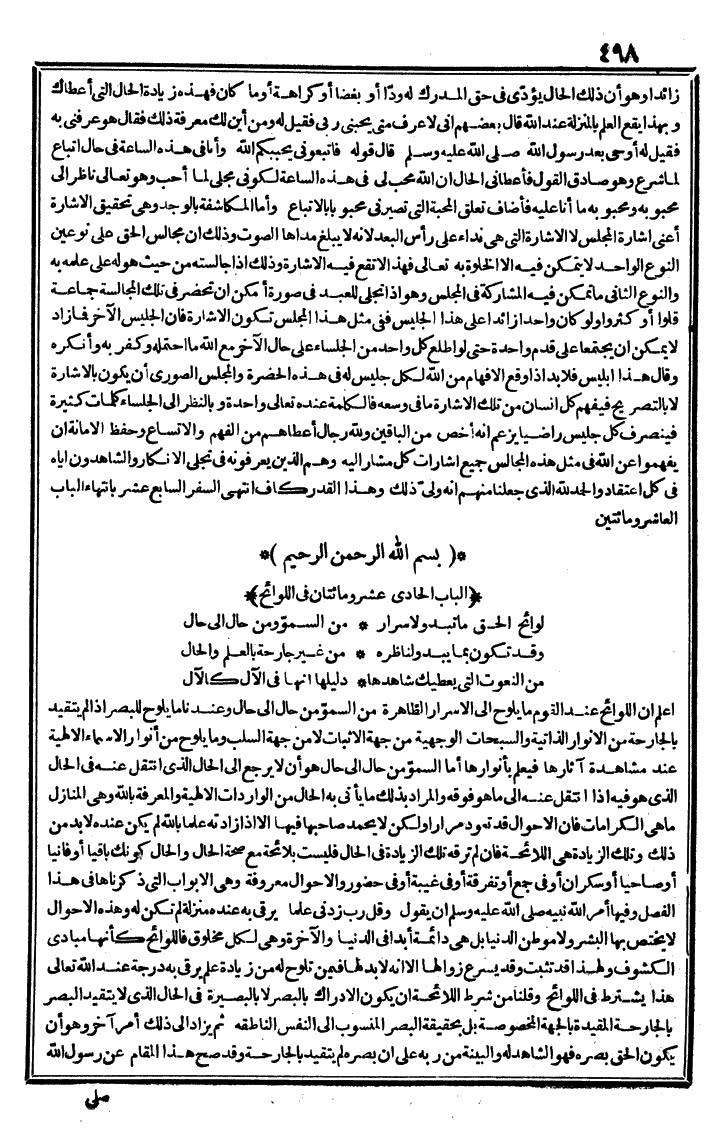 ٤٩٨
زائد او هو أن ذلك الحال يؤدّى فى حق المدرك له ودّا أو بغضا أو كراهة أو ما كان فهذه زيادة الحال التى أعطاك
وبهذا يقع العلم بالمنزلة عند الله قال بعضهم انى لاعرف متى يحبنى ربى فقيل له ومن أين لك معرفة ذلك فقال هو عرفنى به
فقيل له أوحى بعد رسول الله صلى الله عليه وسلم قال قوله فاتبعونى يحببكم الله وأنا فى هذه الساعة فى حال اتباع
لما شرع وهو صادق القول فأعطانى الحال ان الله محب لى فى هذه الساعة لكونى مجلى لما أحب وهو تعالى ناظر الى
محبوبه ومحبوبه ما أنا عليه فأضاف تعلق المحبة التى تصيرنى محبوبا بالاتباع وأما المكاشفة بالوجد وهى تحقيق الاشارة
أعنى اشارة المجلس لا الاشارة التى هى نداء على رأس البعد لانه لا يبلغ مداها الصوت وذلك ان مجالس الحق على نوعين
النوع الواحد لا يتمكن فيه الا الخلوة به تعالى فهذا لا تقع فيه الاشارة وذلك اذا جالسته من حيث هو له على علمه به
والنوع الثانى ما تمكن فيه المشاركة فى المجلس وهو اذا تجلى للعبد فى صورة أمكن ان تحضر فى تلك المجالسة جماعة
قلوا أو كثروا ولو كان واحدا زائدا على هذا الجليس ففى مثل هذا المجلس تكون الاشارة فان الجليس الآخر فما زاد
لا يمكن ان يجتمعا على قدم واحدة حتى لو اطلع كل واحد من الجلساء على حال الآخر مع الله ما احتمله وكفر به وأنكره
وقال هذا ابليس فلا بد اذا وقع الافهام من الله لكل جليس له فى هذه الحضرة والمجلس الصورى أن يكون بالاشارة
لا بالتصريح فيفهم كل انسان من تلك الاشارة ما فى وسعه فالكلمة عنده تعالى واحدة وبالنظر الى الجلساء كلمات كثيرة
فينصرف كل جليس راضيا يزعم انه أخص من الباقين ولله رجال أعطاهم من الفهم والاتساع وحفظ الامانة ان
يفهموا عن الله فى مثل هذه المجالس جميع اشارات كل مشار اليه وهم الذين يعرفونه فى تجلى الانكار والشاهدون اياه
فى كل اعتقاد والحمد لله الذى جعلنا منهم انه ولىّ ذلك وهذا القدر كاف انتهى السفر السابع عشر بانتهاء الباب
العاشر ومائتين
*( بسم الله الرحمن الرحيم )*
*(الباب الحادى عشر ومائتان فى اللوائح)*
لوائح الحق ما تبدو لاسرار * من السموّ ومن حال الى حال
وقد تكون بما يبدو لناظره * من غير جارحة بالعلم والحال
من النعوت التى يعطيك شاهدها * دليلها انها فى الآل كالآل
اعلم ان اللوائح عند القوم ما يلوح الى الاسرار الظاهرة من السموّ من حال الى حال وعندنا ما يلوح للبصر اذا لم يتقيد
بالجارحة من الانوار الذاتية والسبحات الوجهية من جهة الاثبات لا من جهة السلب وما يلوح من أنوار الاسماء الالهية
عند مشاهدة آثارها فيعلم بأنوارها أما السموّ من حال الى حال هو أن لا يرجع الى الحال الذى انتقل عنه فى الحال
الذى هو فيه اذا انتقل عنه الى ما هو فوقه والمراد بذلك ما يأتى به الحال من الواردات الالهية والمعرفة بالله وهى المنازل
ما هى الكرامات فان الاحوال قد تعود مرارا ولكن لا يحمد صاحبها فيها الا اذا زادته علما بالله لم يكن عنده لا بد من
ذلك وتلك الزيادة هى اللائحة فان لم ترقه تلك الزيادة فى الحال فليست بلائحة مع صحة الحال والحال كونك باقيا أو فانيا
أو صاحيا أو سكران أو فى جمع أو تفرقة أو فى غيبة أو فى حضور والاحوال معروفة وهى الابواب التى ذكرناها فى هذا
الفصل وفيها أمر الله نبيه صلى الله عليه وسلم ان يقول وقل رب زدنى علما يرقى به عنده منزلة لم تكن له وهذه الاحوال
لا يختص بها البشر ولا موطن الدنيا بل هى دائمة أبدا فى الدنيا والآخرة وهى لكل مخلوق فاللوائح كأنها مبادى
الكشوف ولهذا قد تثبت وقد يسرع زوالها الا انه لا بد لها فيمن تلوح له من زيادة علم يرقى به درجة عند الله تعالى
هذا يشترط فى اللوائح وقلنا من شرط اللائحة ان يكون الادراك بالبصر لا بالبصيرة فى الحال الذى لا يتقيد البصر
بالجارحة المقيدة بالجهة المخصوصة بل بحقيقة البصر المنسوب الى النفس الناطقه ثم يزاد الى ذلك أمر آخر وهو أن
يكون الحق بصره فهو الشاهد له والبينة من ربه على ان بصره لم يتقيد بالجارحة وقد صح هذا المقام عن رسول الله
صلى